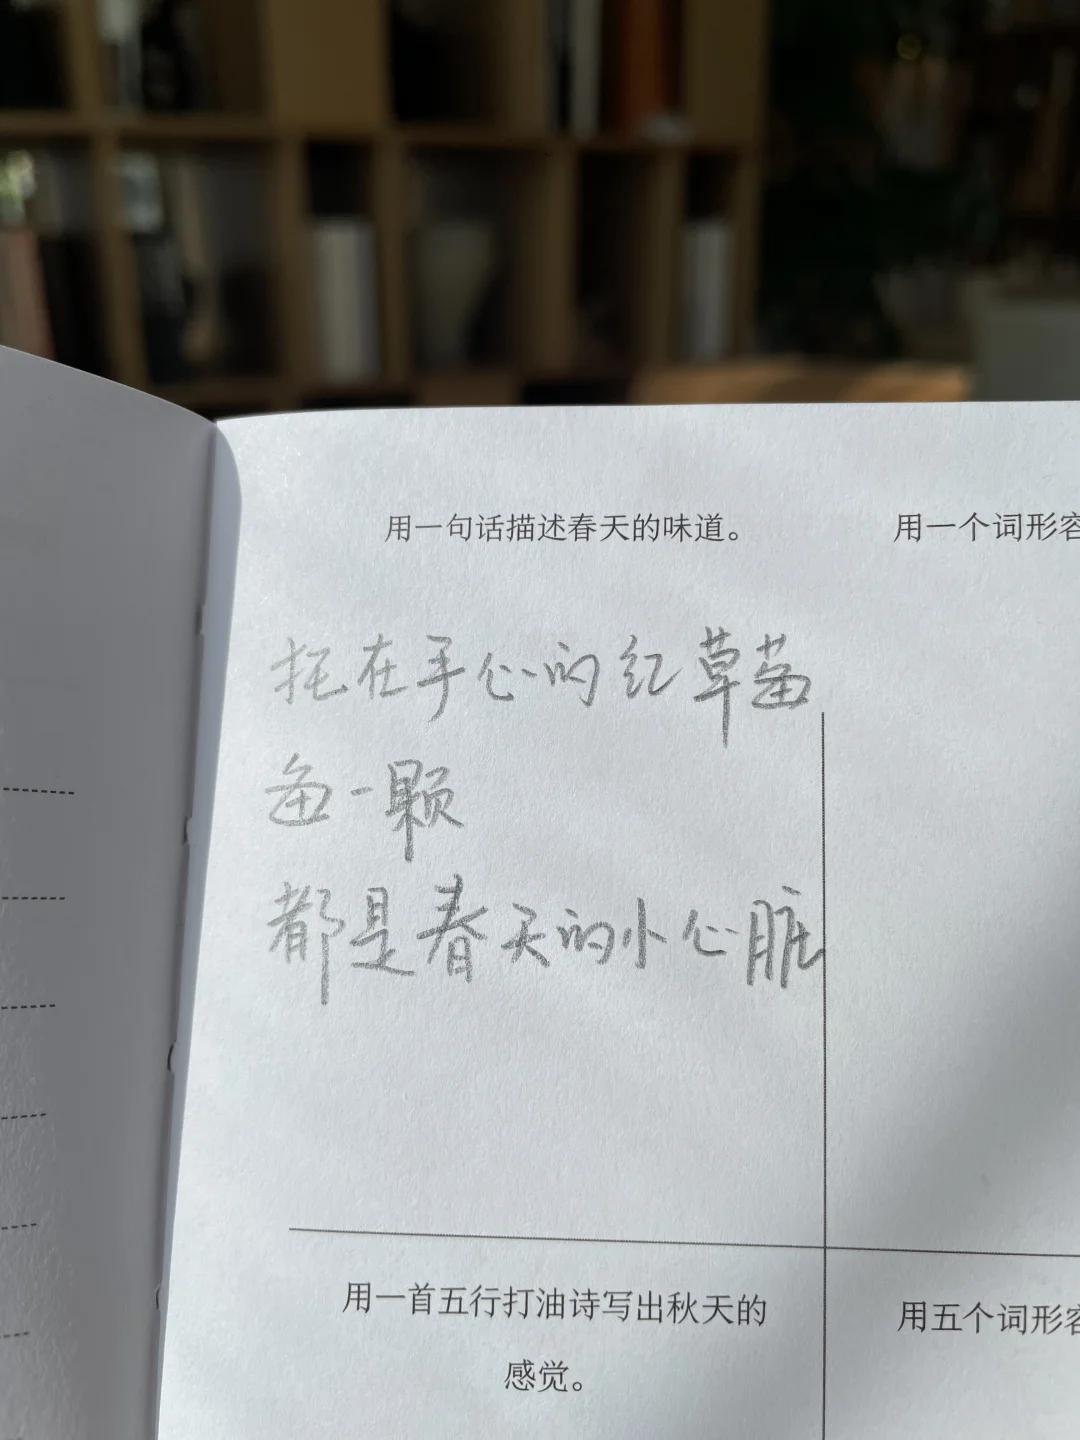 用一句话描述春天的味道。
用一个词形容
托在手心的红草莓
每一颗
都是春天的小心脏
用一首五行打油诗写出秋天的
感觉。
用五个词形容